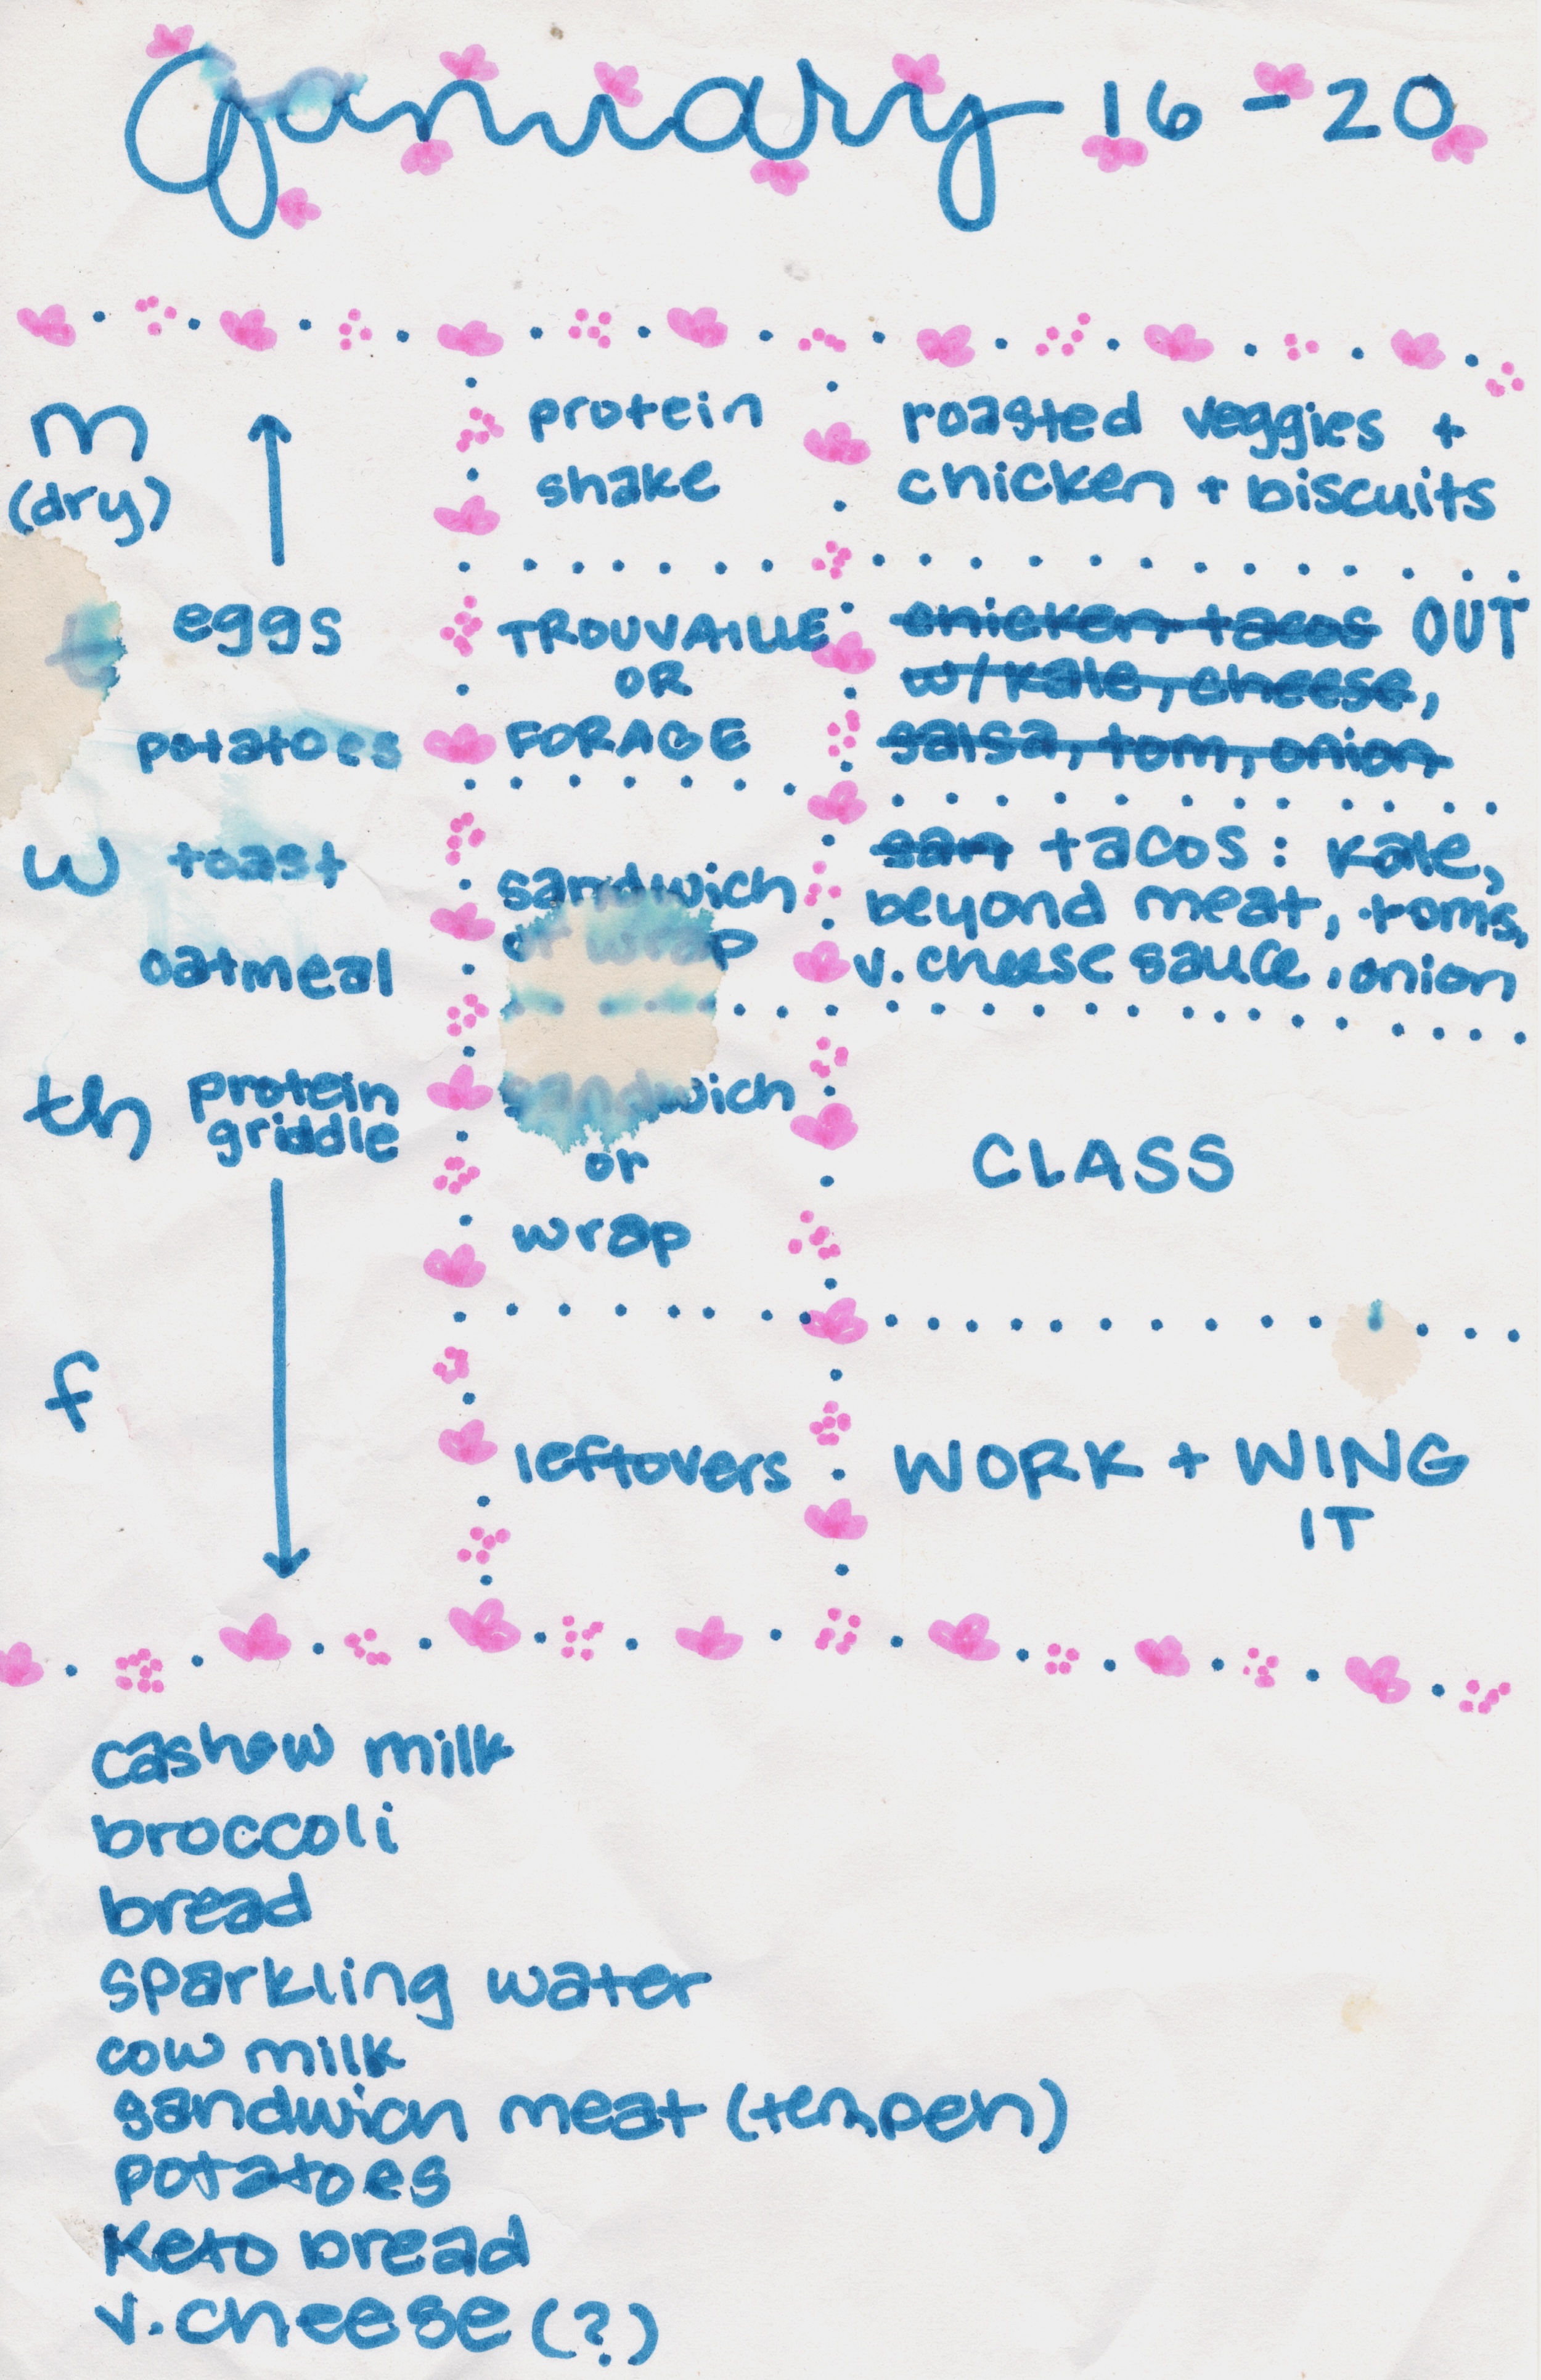 January 16 - 20
m
(dry)
protein
shake
roasted veggies +
chicken + biscuits
t
eggs
potatoes
TROUVAILLE
OR
FORAGE
chicken tacos OUT
w/kale, cheese,
salsa, tom, onion
w
toast
oatmeal
sandwich
or wrap
san tacos: kale,
beyond meat, toms,
v. cheese sauce, onion
th
protein
griddle
sandwich
or
wrap
CLASS
f
leftovers
WORK + WING
IT
cashew milk
broccoli
bread
sparkling water
cow milk
sandwich meat (tempeh)
potatoes
Keto bread
v. cheese (?)